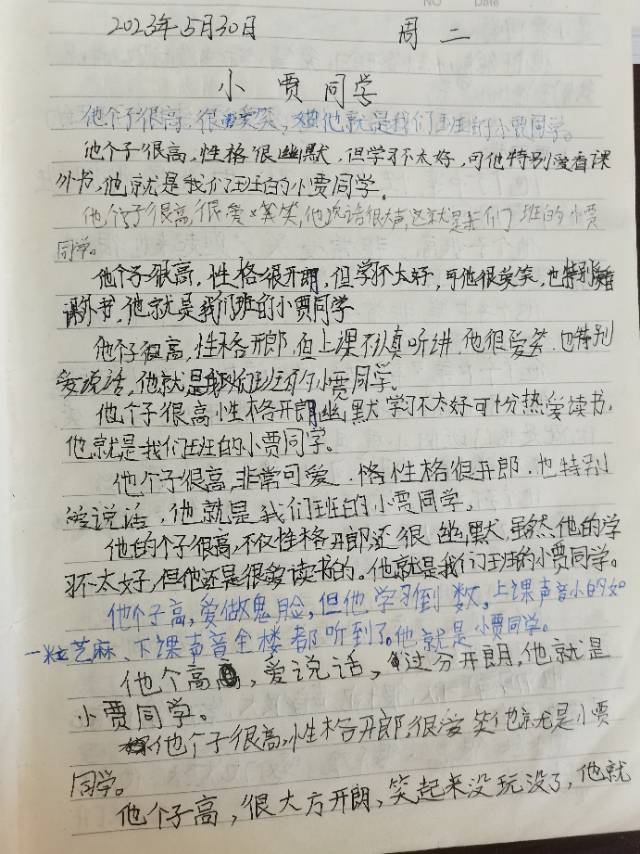 NO Date
2023年5月30日 周二
小贾同学
他个子很高,很爱笑,他就是我们班的小贾同学。
他个子很高,性格很幽默,但学习不太好,可他特别爱看课
外书,他就是我们班的小贾同学。
他个子很高,很爱笑,他说话很大声,这就是我们班的小贾
同学。
他个子很高,性格很开朗,但学不太好,可他很爱笑,也特别爱看
课外书,他就是我们班的小贾同学
他个子很高,性格开郎,但上课不认真听讲,他很爱笑,也特别
爱说话,他就是我们班的小贾同学。
他个子很高性格开朗幽默学习不太好可十分热爱读书,
他就是我们班的小贾同学。
他个子很高,非常可爱,性格很开郎,也特别
爱说话,他就是我们班的小贾同学。
他的个子很高,不仅性格开郎还很幽默,虽然他的学
习不太好,但他还是很爱读书的。他就是我们班的小贾同学。
他个子高,爱做鬼脸,但他学习倒数,上课声音小的如
一粒芝麻、下课声音全楼都听到了。他就是小贾同学。
他个高,爱说话,过分开朗,他就是
小贾同学。
他个子很高,性格开郎,很爱笑他就是小贾
同学。
他个子高,很大方开朗,笑起来没玩没了,他就